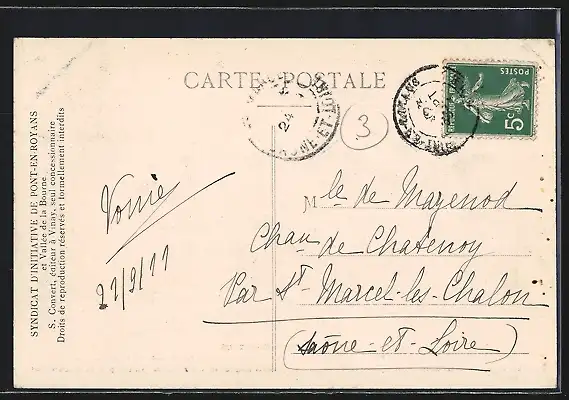 CARTE POSTALE
SYNDICAT D'INITIATIVE DE PONT-EN-ROYANS
et Vallée de la Bourne.
S. Convert, éditeur à Vinay, seul concessionnaire
Droits de reproduction réservés et formellement interdits
24
SAONE-ET-LOIRE
3
POSTES
5c
Mlle de Mazenod
Chau de Chatenoy
Par St Marcel-les-Chalon
(Saône-et-Loire)